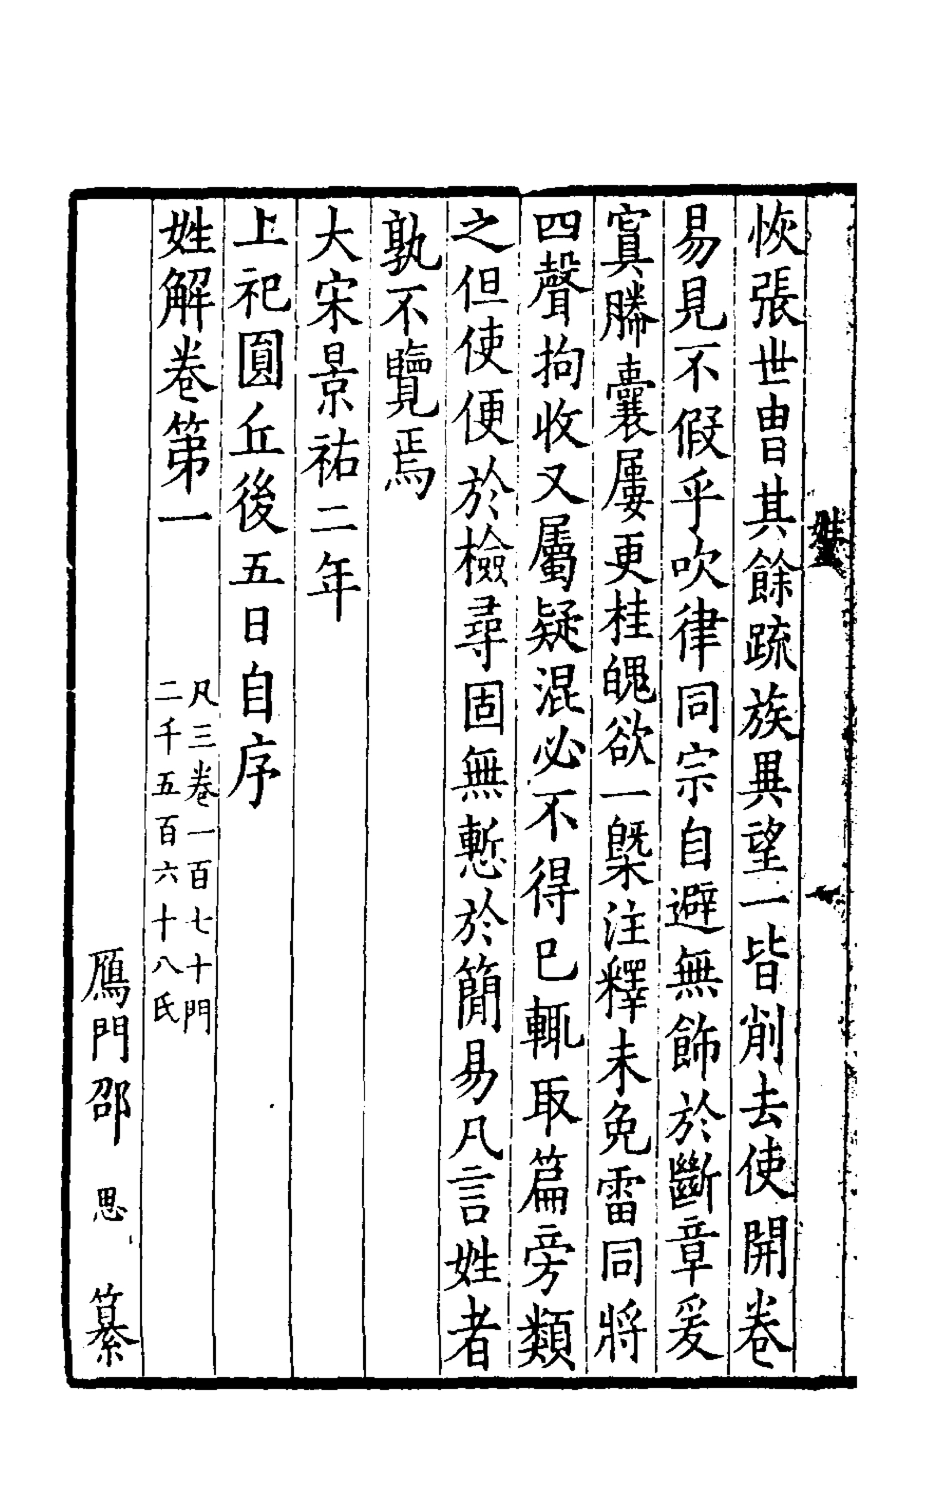 恢張世冑其餘疏族異望一皆削去使開卷
易見不假乎吹律同宗自避無飾於斷章爰
寘縢囊屢更桂魄欲一槩注釋未免雷同將
四聲拘收又屬疑混必不得已輒取篇旁類
之但使便於檢尋固無慙於簡易凡言姓者
孰不覽焉
大宋景祐二年
上祀圓丘後五日自序
姓解卷第一
凡三卷一百七十門
二千五百六十八氏
鴈門邵思纂